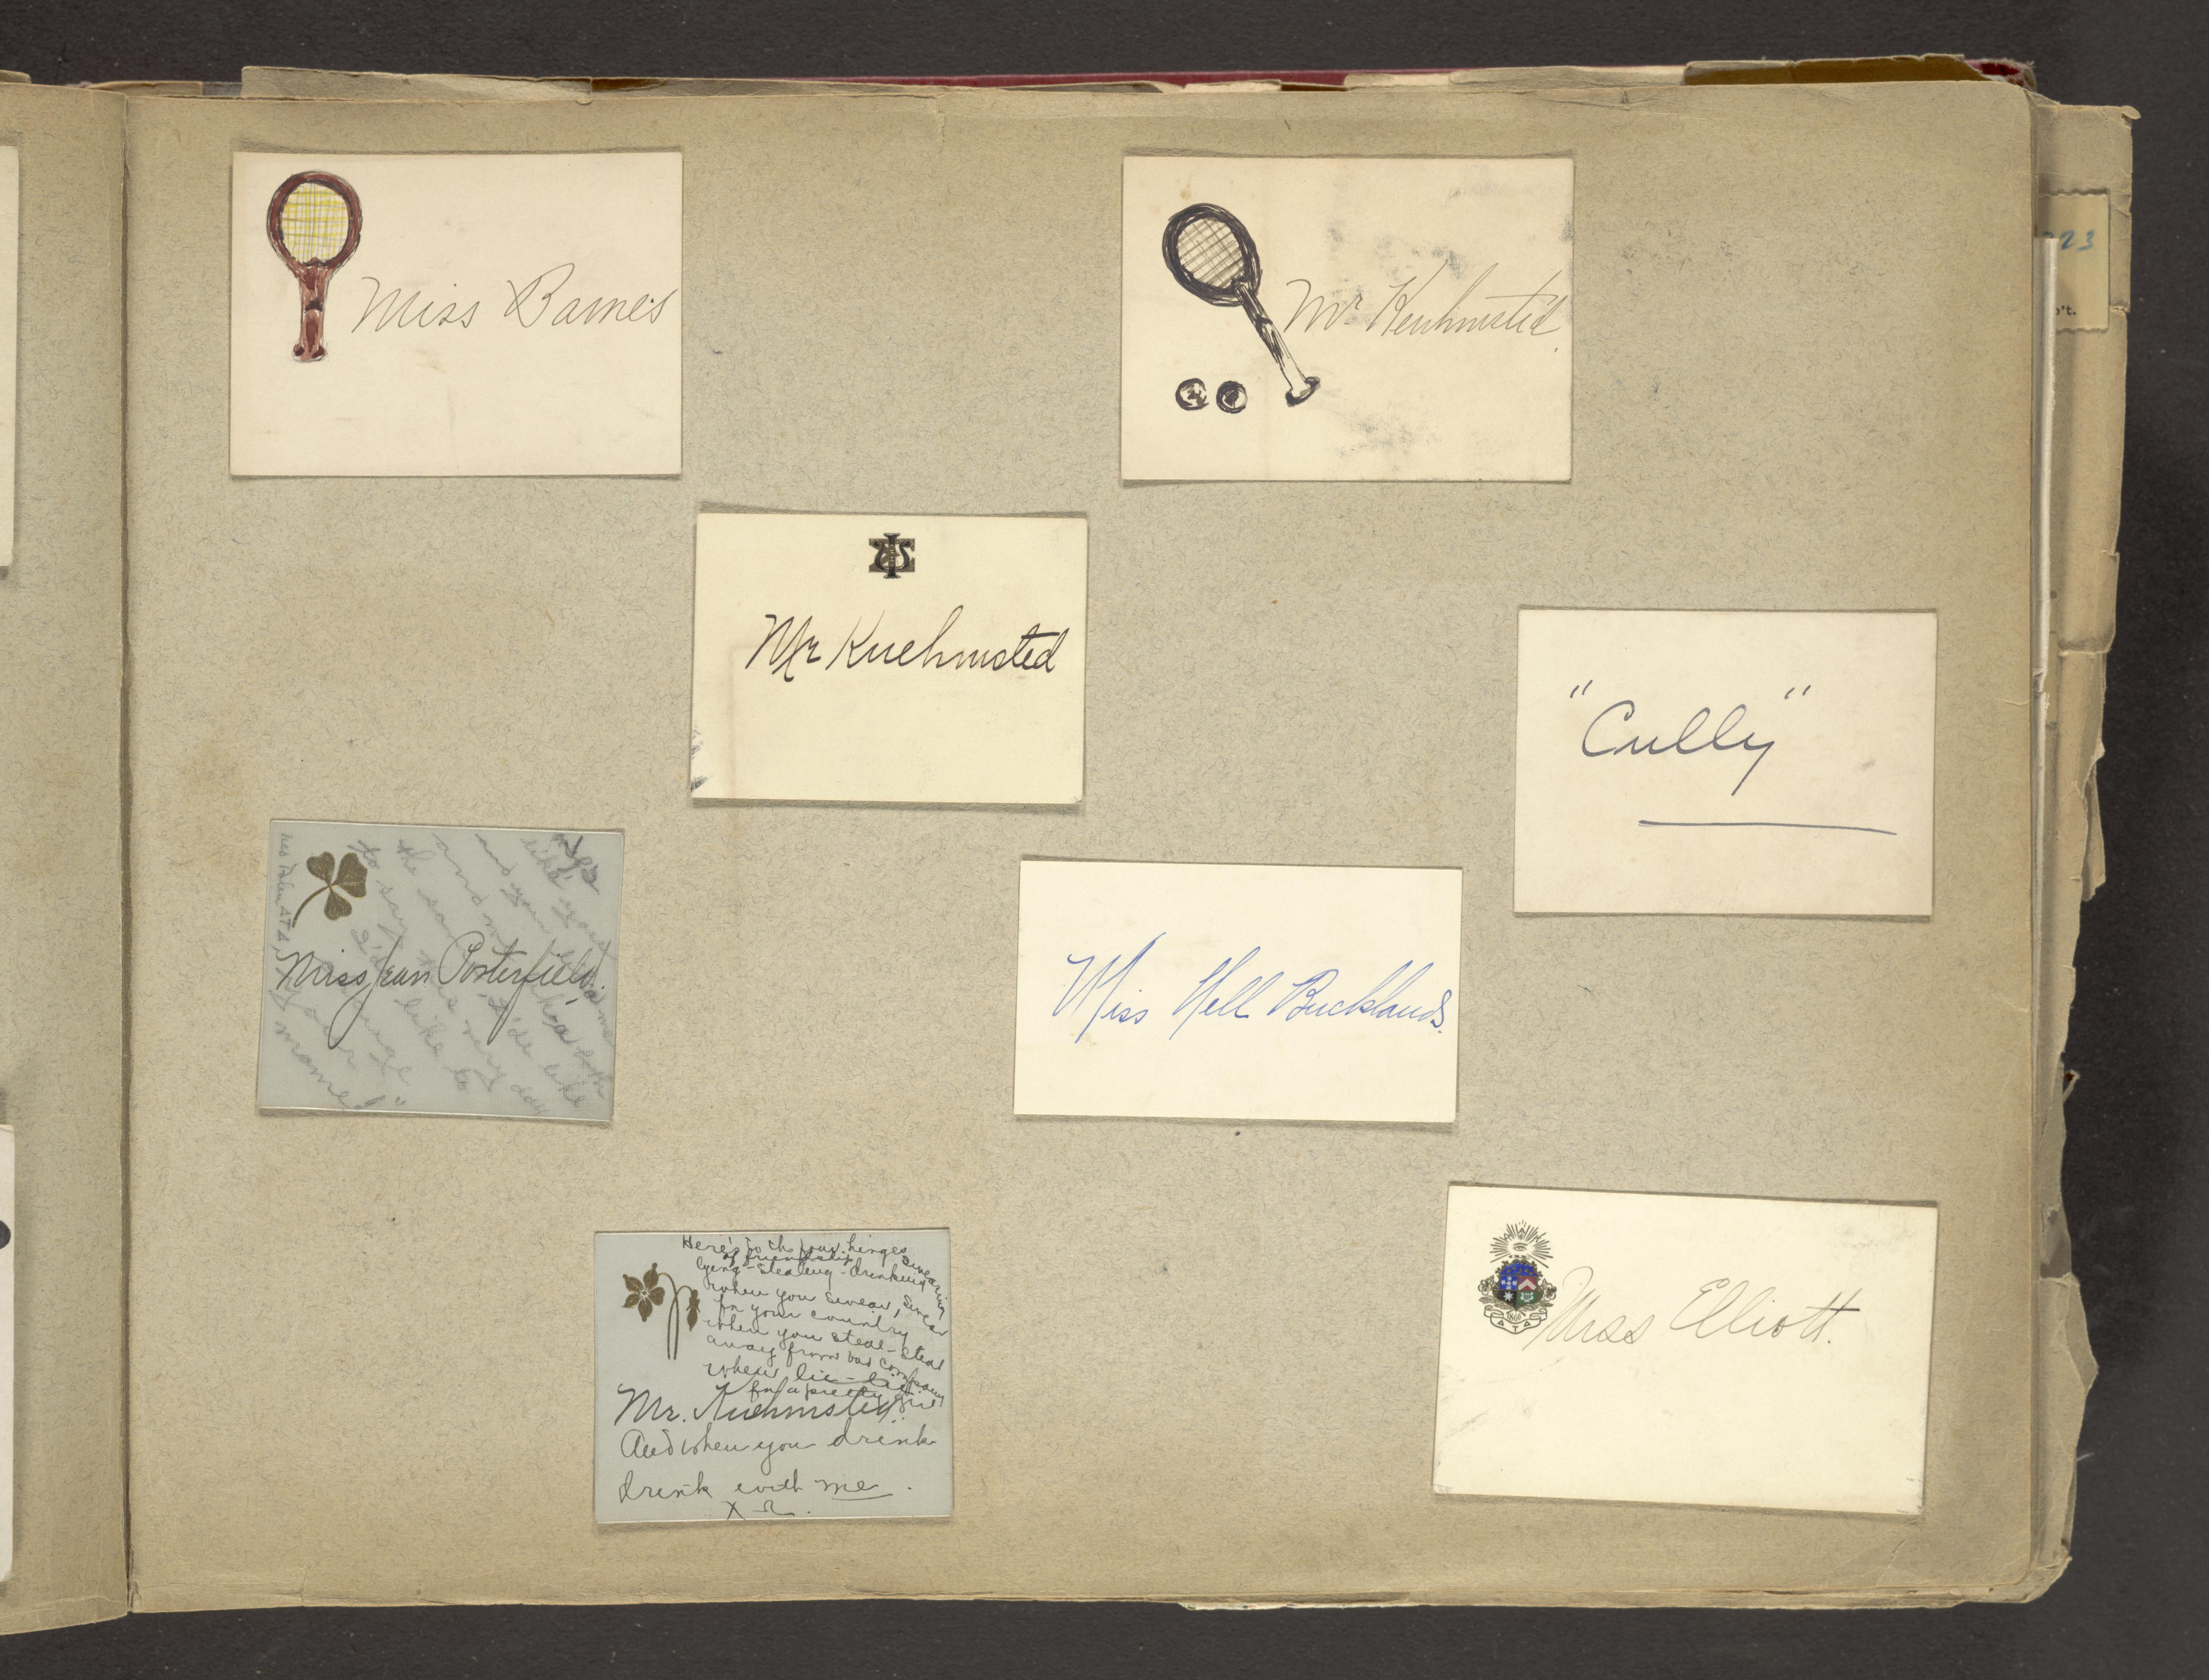 Miss Barnes
Mr Keuhmsted.
Mr Kuehmsted
"Cully"
Miss Jean Porterfield.
and you
and
the
to say
I'd like to
like
name"
Miss Nell Bucklands.
Here's to the four hinges
of friendship
Swearing
lying - stealing - drinking
When you swear, swear
by your country
when you steal - steal
away from bad company
when lie - lie
for a pretty girl
Mr. Kuehmsted.
And when you drink
drink with me.
X Ω.
1860
ΔΤΔ
Miss Elliott.
23
o't.